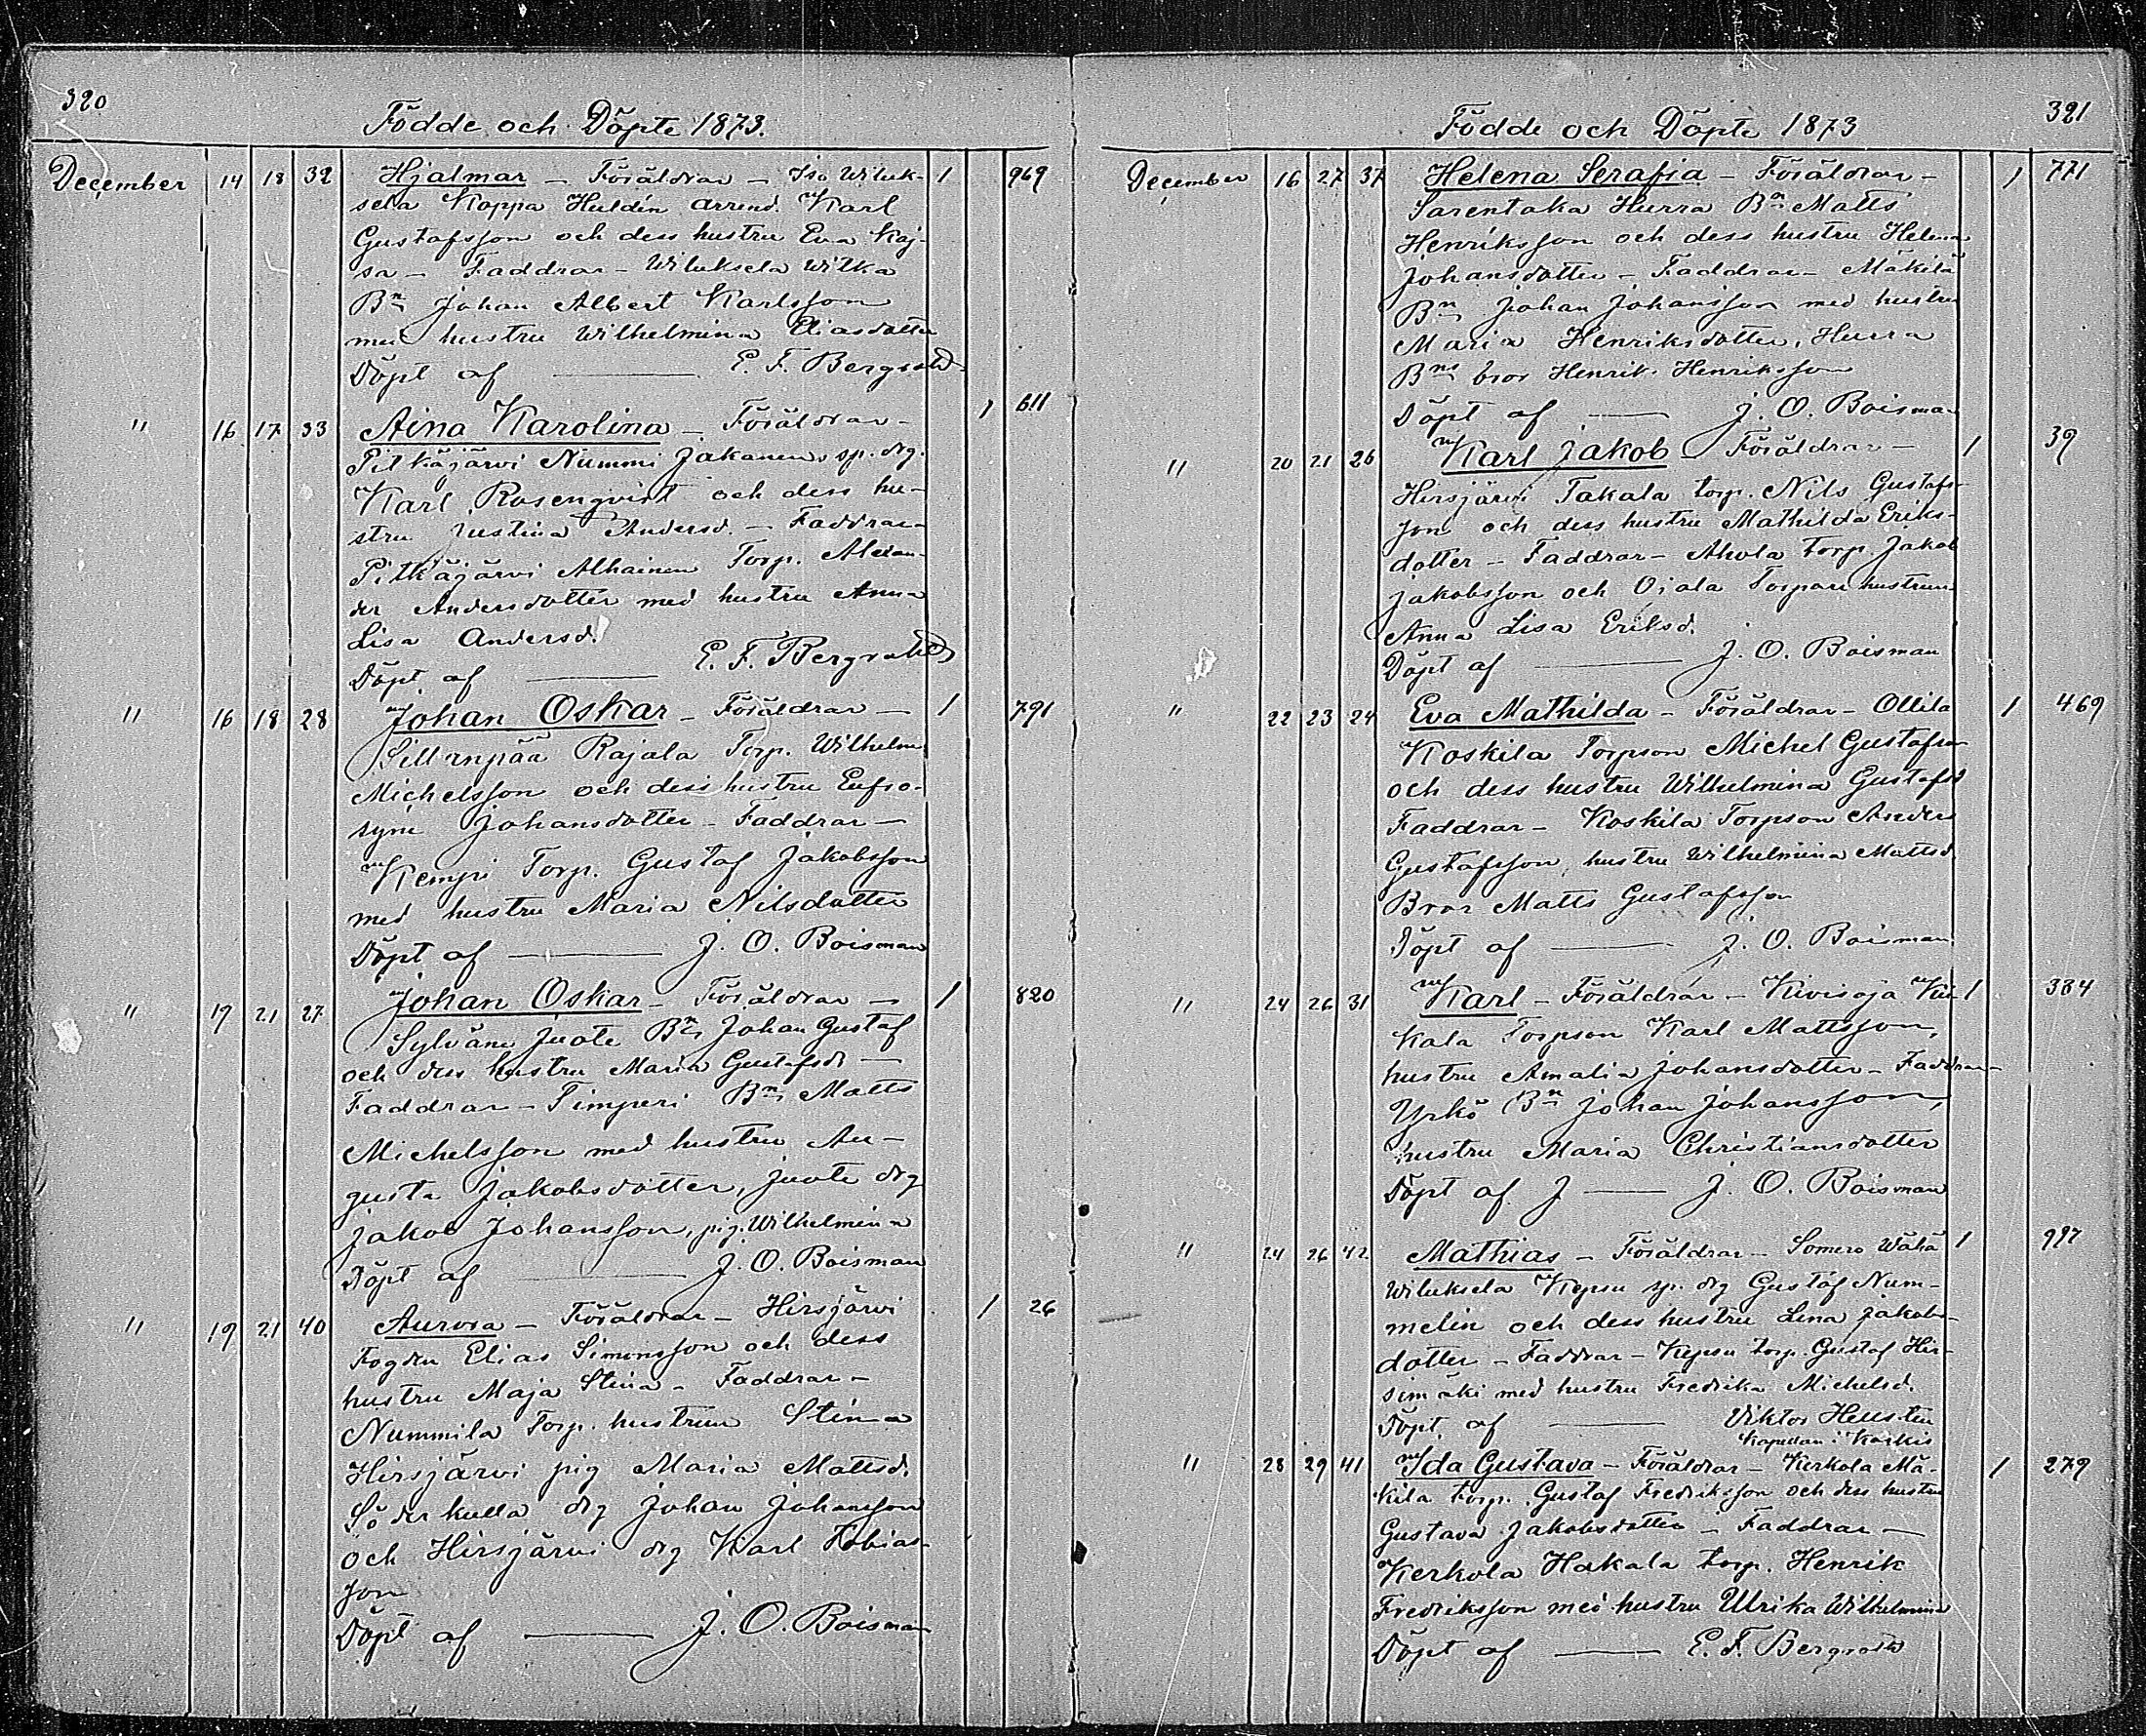 320
Födde och Döpte 1873.
December 14 18 32 Hjalmar – Föräldrar – Iso Wiluk- 1 969
sela Kappa Huldin arrend. Karl
Gustafsson och dess hustru Eva Kaj-
sa – Faddrar – Wiluksela Witka
Bn Johan Albert Karlsson
med hustru Wilhelmina Eliasdotter
Döpt af — E. F. Bergroth
" 16 17 33 Aina Karolina – Föräldrar – 1 611
Pitkäjärvi Nummi Jakanens sp. drg.
Karl Rosenqvist och dess hu-
stru Justina Andersd. – Faddrar –
Pitkäjärvi Alhainen Torp. Alexan-
der Andersdotter med hustru Anna
Lisa Andersd.
Döpt af — E. F. Bergroth
" 16 18 28 Johan Oskar – Föräldrar – 1 791
Sillanpää Rajala Torp. Wilhelm
Michelsson och dess hustru Eufro-
syne Johansdotter – Faddrar –
Kempi Torp. Gustaf Jakobsson
med hustru Maria Nilsdotter
Döpt af — J. O. Boisman
" 19 21 27 Johan Oskar – Föräldrar – 1 820
Sylväne Juote Bn Johan Gustaf
och dess hustru Maria Gustafsd. –
Faddrar – Timperi Bn Matts
Michelsson med hustru Au-
gusta Jakobsdotter, Juote drg
Jakob Johansson, pig. Wilhelmina
Döpt af — J. O. Boisman
" 19 21 40 Aurora – Föräldrar – Hirsjärvi 1 26
Fogden Elias Simonsson och dess
hustru Maja Stina – Faddrar –
Nummila Torp. hustrun Stina
Hirsjärvi pig Maria Mattsd.
Söderkulla drg Johan Johansson
och Hirsjärvi drg Karl Tobias-
son
Döpt af — J. O. Boisman
321
Födde och Döpte 1873
December 16 27 37 Helena Serafia – Föräldrar – 1 771
Sarentaka Hurra Bn Matts
Henriksson och dess hustru Helena
Johansdotter – Faddrar – Mäkilä
Bn Johan Johansson med hustru
Maria Henriksdotter, Hurra
Bns bror Henrik Henriksson
Döpt af — J. O. Boisman
" 20 21 26 Karl Jakob – Föräldrar – 1 39
Hirsjärvi Takala torp. Nils Gustafs-
son och dess hustru Mathilda Eriks-
dotter – Faddrar – Ahola torp. Jakob
Jakobsson och Ojala Torpare hustrun
Anna Lisa Eriksd.
Döpt af — J. O. Boisman
" 22 23 24 Eva Mathilda – Föräldrar – Ollila 1 469
Koskila Torpson Michel Gustafsson
och dess hustru Wilhelmina Gustafsd
Faddrar – Koskila Torpson Anders
Gustafsson, hustru Wilhelmina Mattsd.
Bror Matts Gustafsson
Döpt af — J. O. Boisman
" 24 26 31 Karl – Föräldrar – Kivisoja Kui- 1 384
kala Torpson Karl Mattsson,
hustru Amalia Johansdotter – Faddrar –
Yrkö Bn Johan Johansson,
hustru Maria Christiansdotter
Döpt af J — J. O. Boisman
" 24 26 42 Mathias – Föräldrar – Somero Wähä 1 997
Wiluksela Kepsu sp. drg Gustaf Num-
melin och dess hustru Lena Jakobs-
dotter – Faddrar – Kepsu torp. Gustaf Hir-
simäki med hustru Fredrika Michelsd.
Döpt af — Viktor Heusten
Kapellan i Karkis
" 28 29 41 Ida Gustava – Föräldrar – Kerkola Mä- 1 279
kila torp. Gustaf Fredriksson och dess hustru
Gustava Jakobsdotter – Faddrar –
Kerkola Hakala torp. Henrik
Fredriksson med hustru Ulrika Wilhelmina
Döpt af — E. F. Bergroth